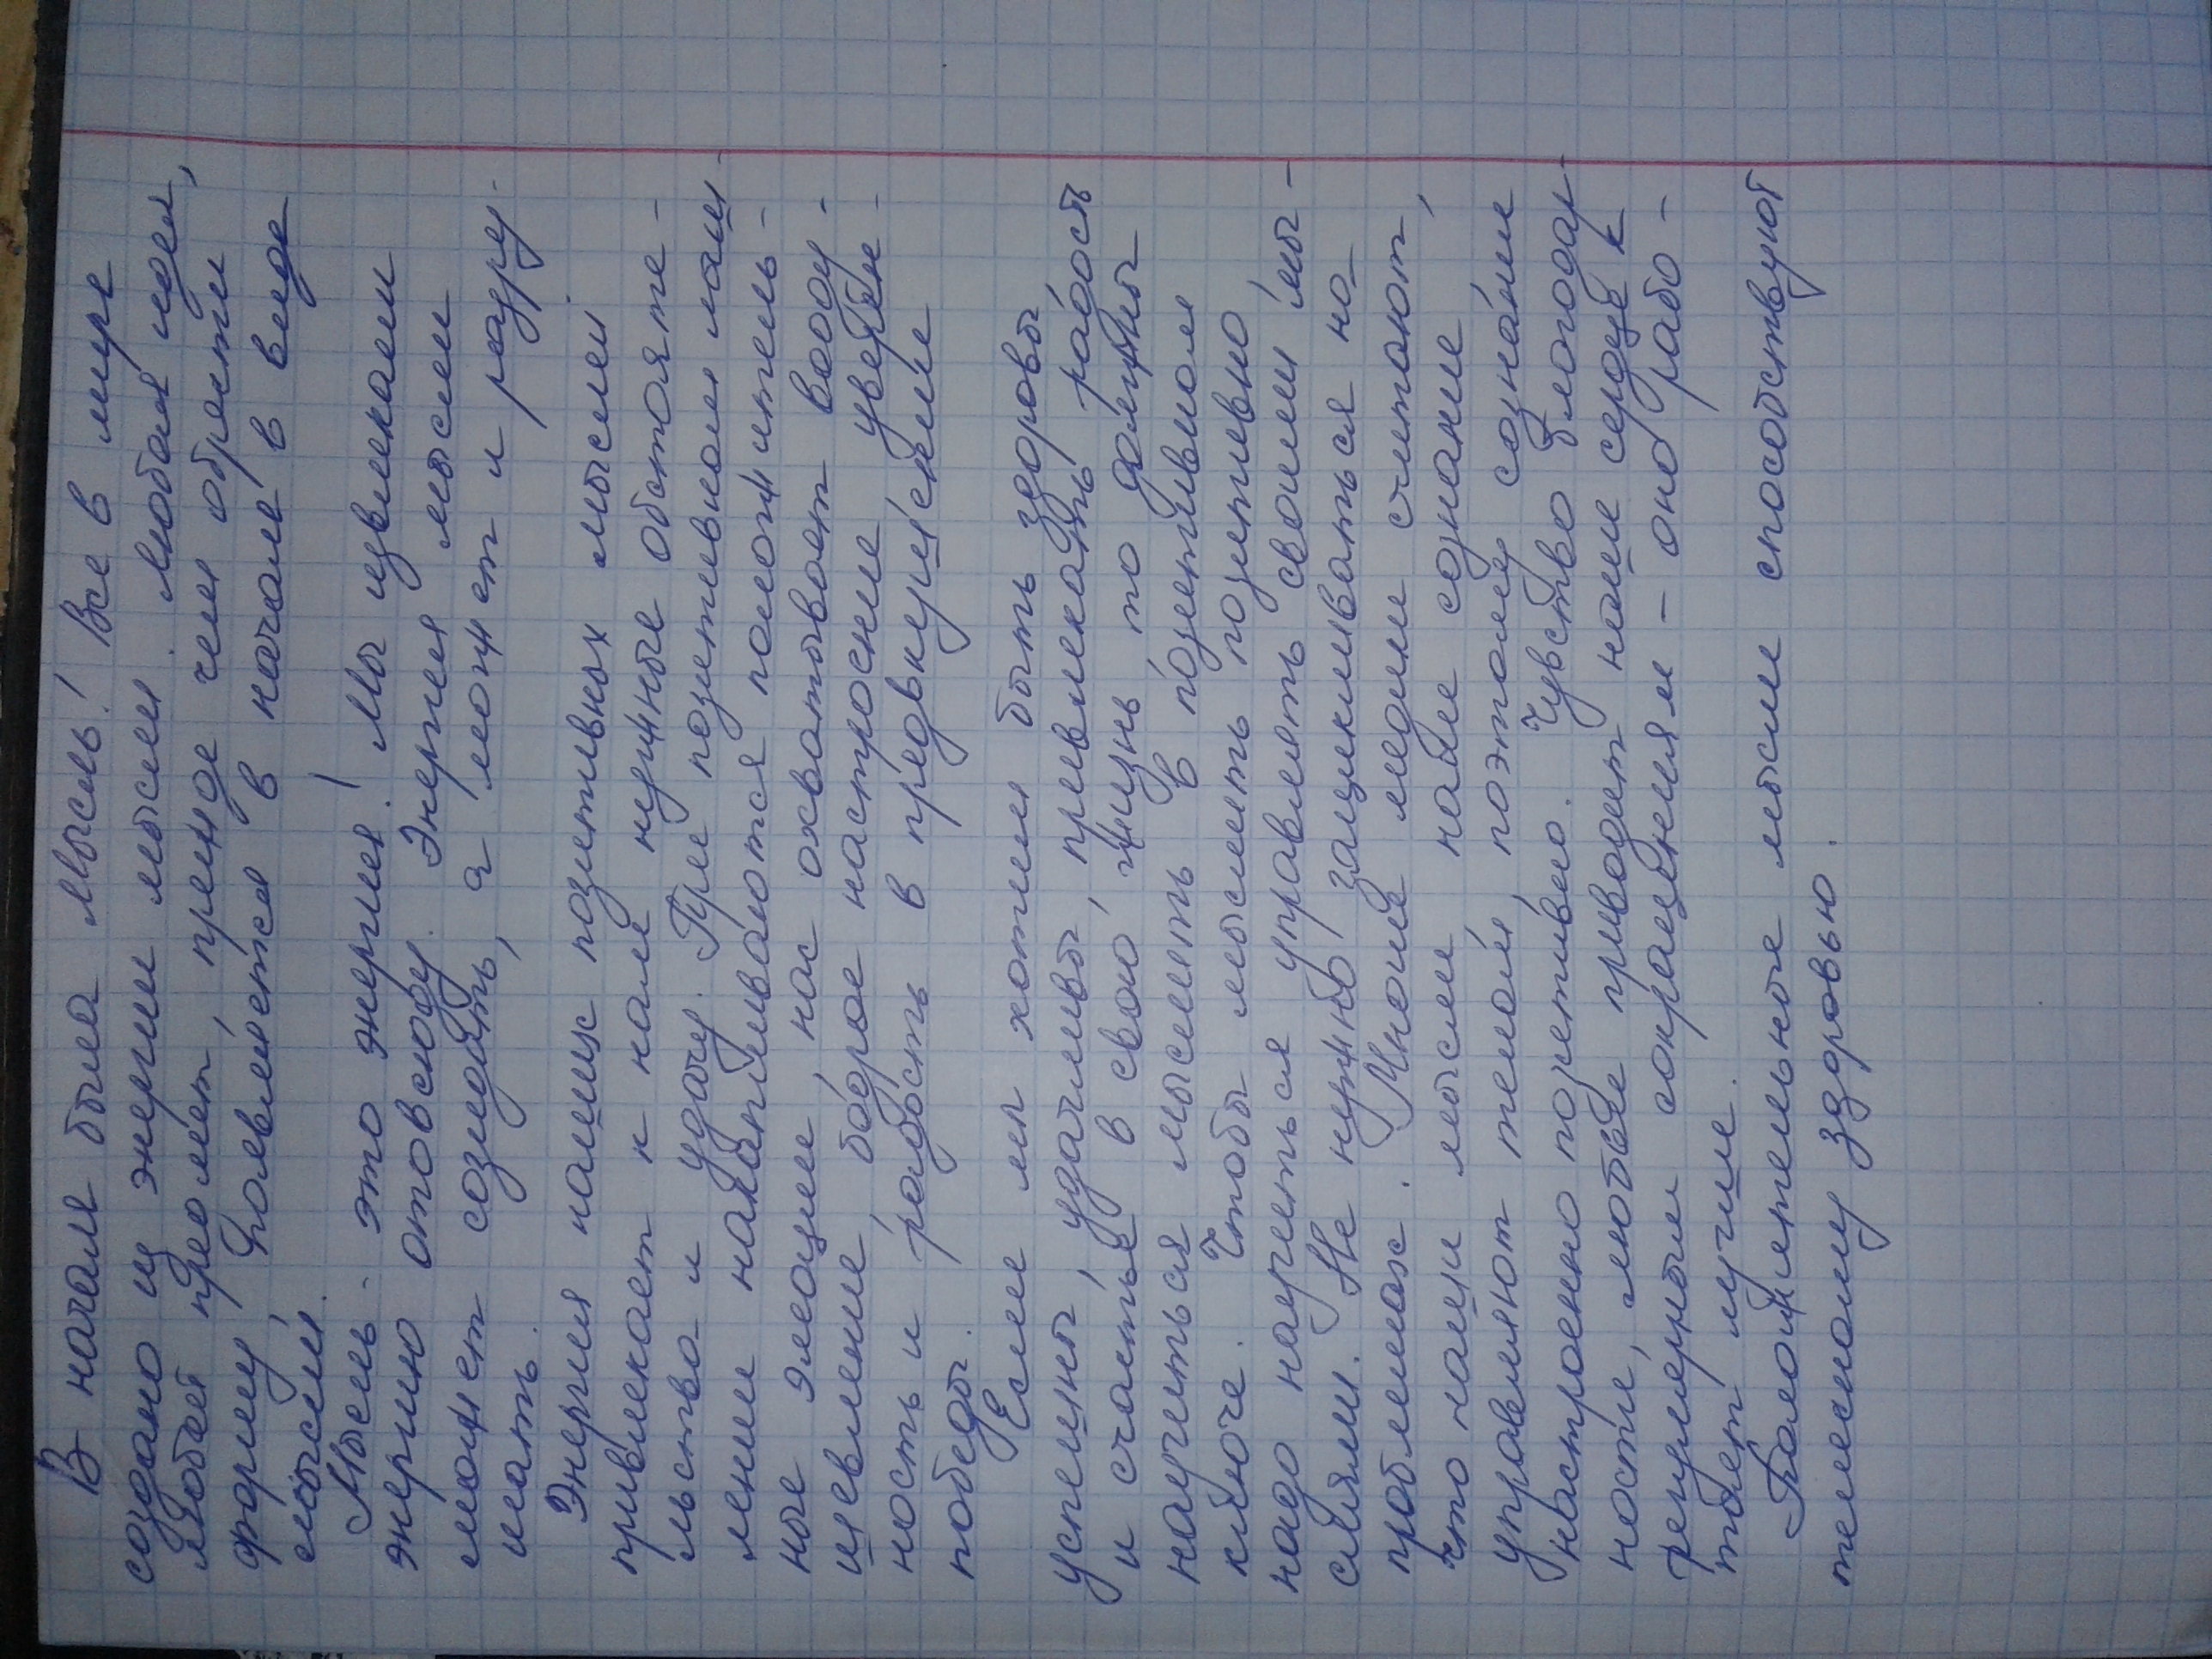 В начале была мысль! Все в мире
создано из энергии мысли. Любая идея,
любой предмет, прежде чем обрести
форму, появляется в начале в виде
мысли.
Мысль - это энергия! Мы извлекаем
энергию отовсюду. Энергия мысли
может созидать, а может и разру-
шать.
Энергия наших позитивных мыслей
привлекает к нам нужные обстояте-
льства и удачу. При позитивном мыш-
лении накапливаются положитель-
ные эмоции, нас охватывает вооду-
шевление, бодрое настроение, уверен-
ность и радость в предвкушении
победы.
Если мы хотим быть здоровы,
успешны, удачливы, привлекать радость
и счастье в свою жизнь то должны
научиться мыслить в позитивном
ключе. Чтобы мыслить позитивно,
надо научиться управлять своими мы-
слями. Не нужно зацикливаться на
проблемах. Многие медики считают,
что наши мысли, наше сознание
управляют телом, поэтому сознание
настроенно позитивно. Чувство благодар-
ности, любви приводит наше сердце к
регулярным сокращениям - оно рабо-
тает лучше.
Положительные мысли способствуют
телесному здоровью.